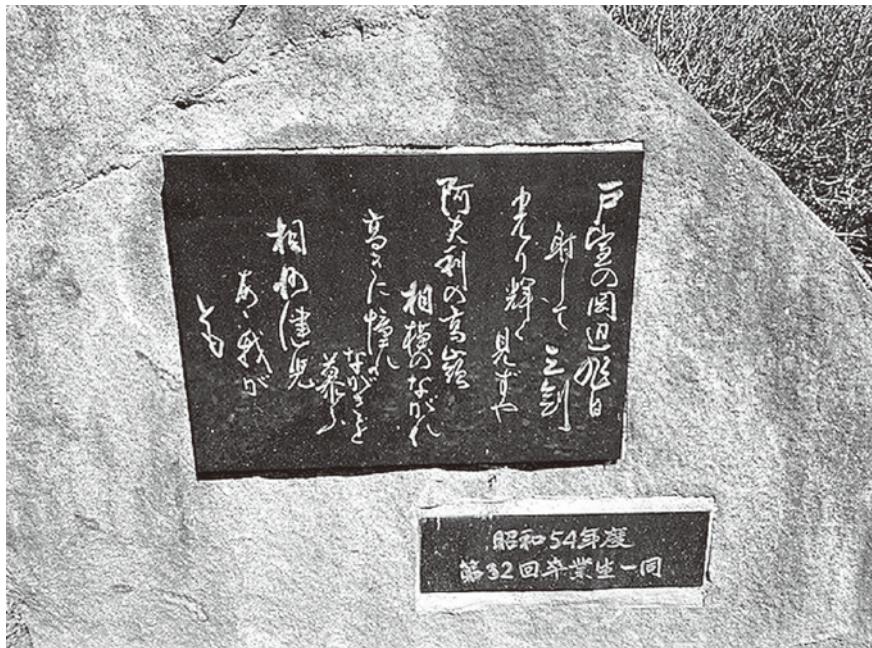 戸室の岡辺旭日
射して 三剣
光り輝く 見ずや
阿夫利の高嶺
相模のながれ
高きに憧れ
ながきを
慕ふ
相州健児
あゝ我が
とも
昭和54年度
第32回卒業生一同